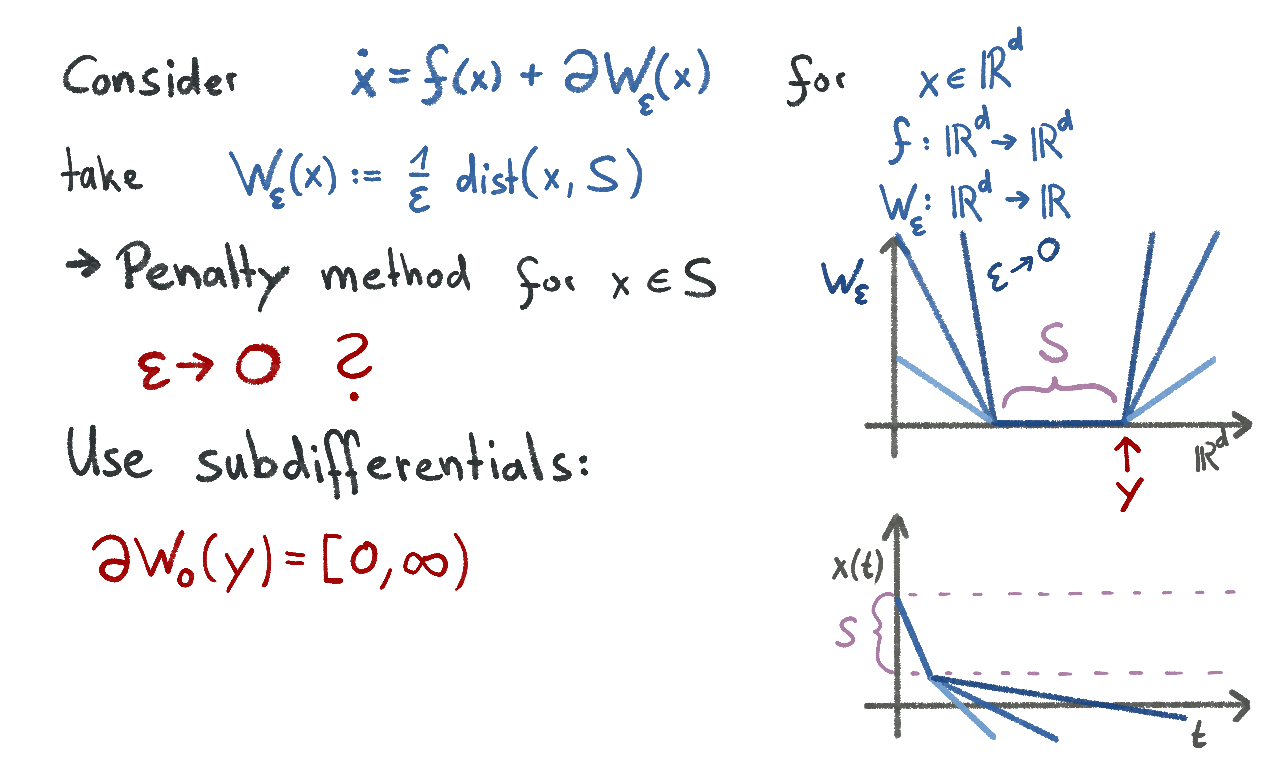 Consider ẋ = f(x) + ∂W_ε(x) for x ∈ ℝ^d
f : ℝ^d → ℝ^d
take W_ε(x) := 1/ε dist(x, S)
W_ε : ℝ^d → ℝ
→ Penalty method for x ∈ S
W_ε
ε → 0
S
ε → 0 ?
Use subdifferentials:
ℝ^d
y
∂W_0(y) = [0, ∞)
x(t)
S
t